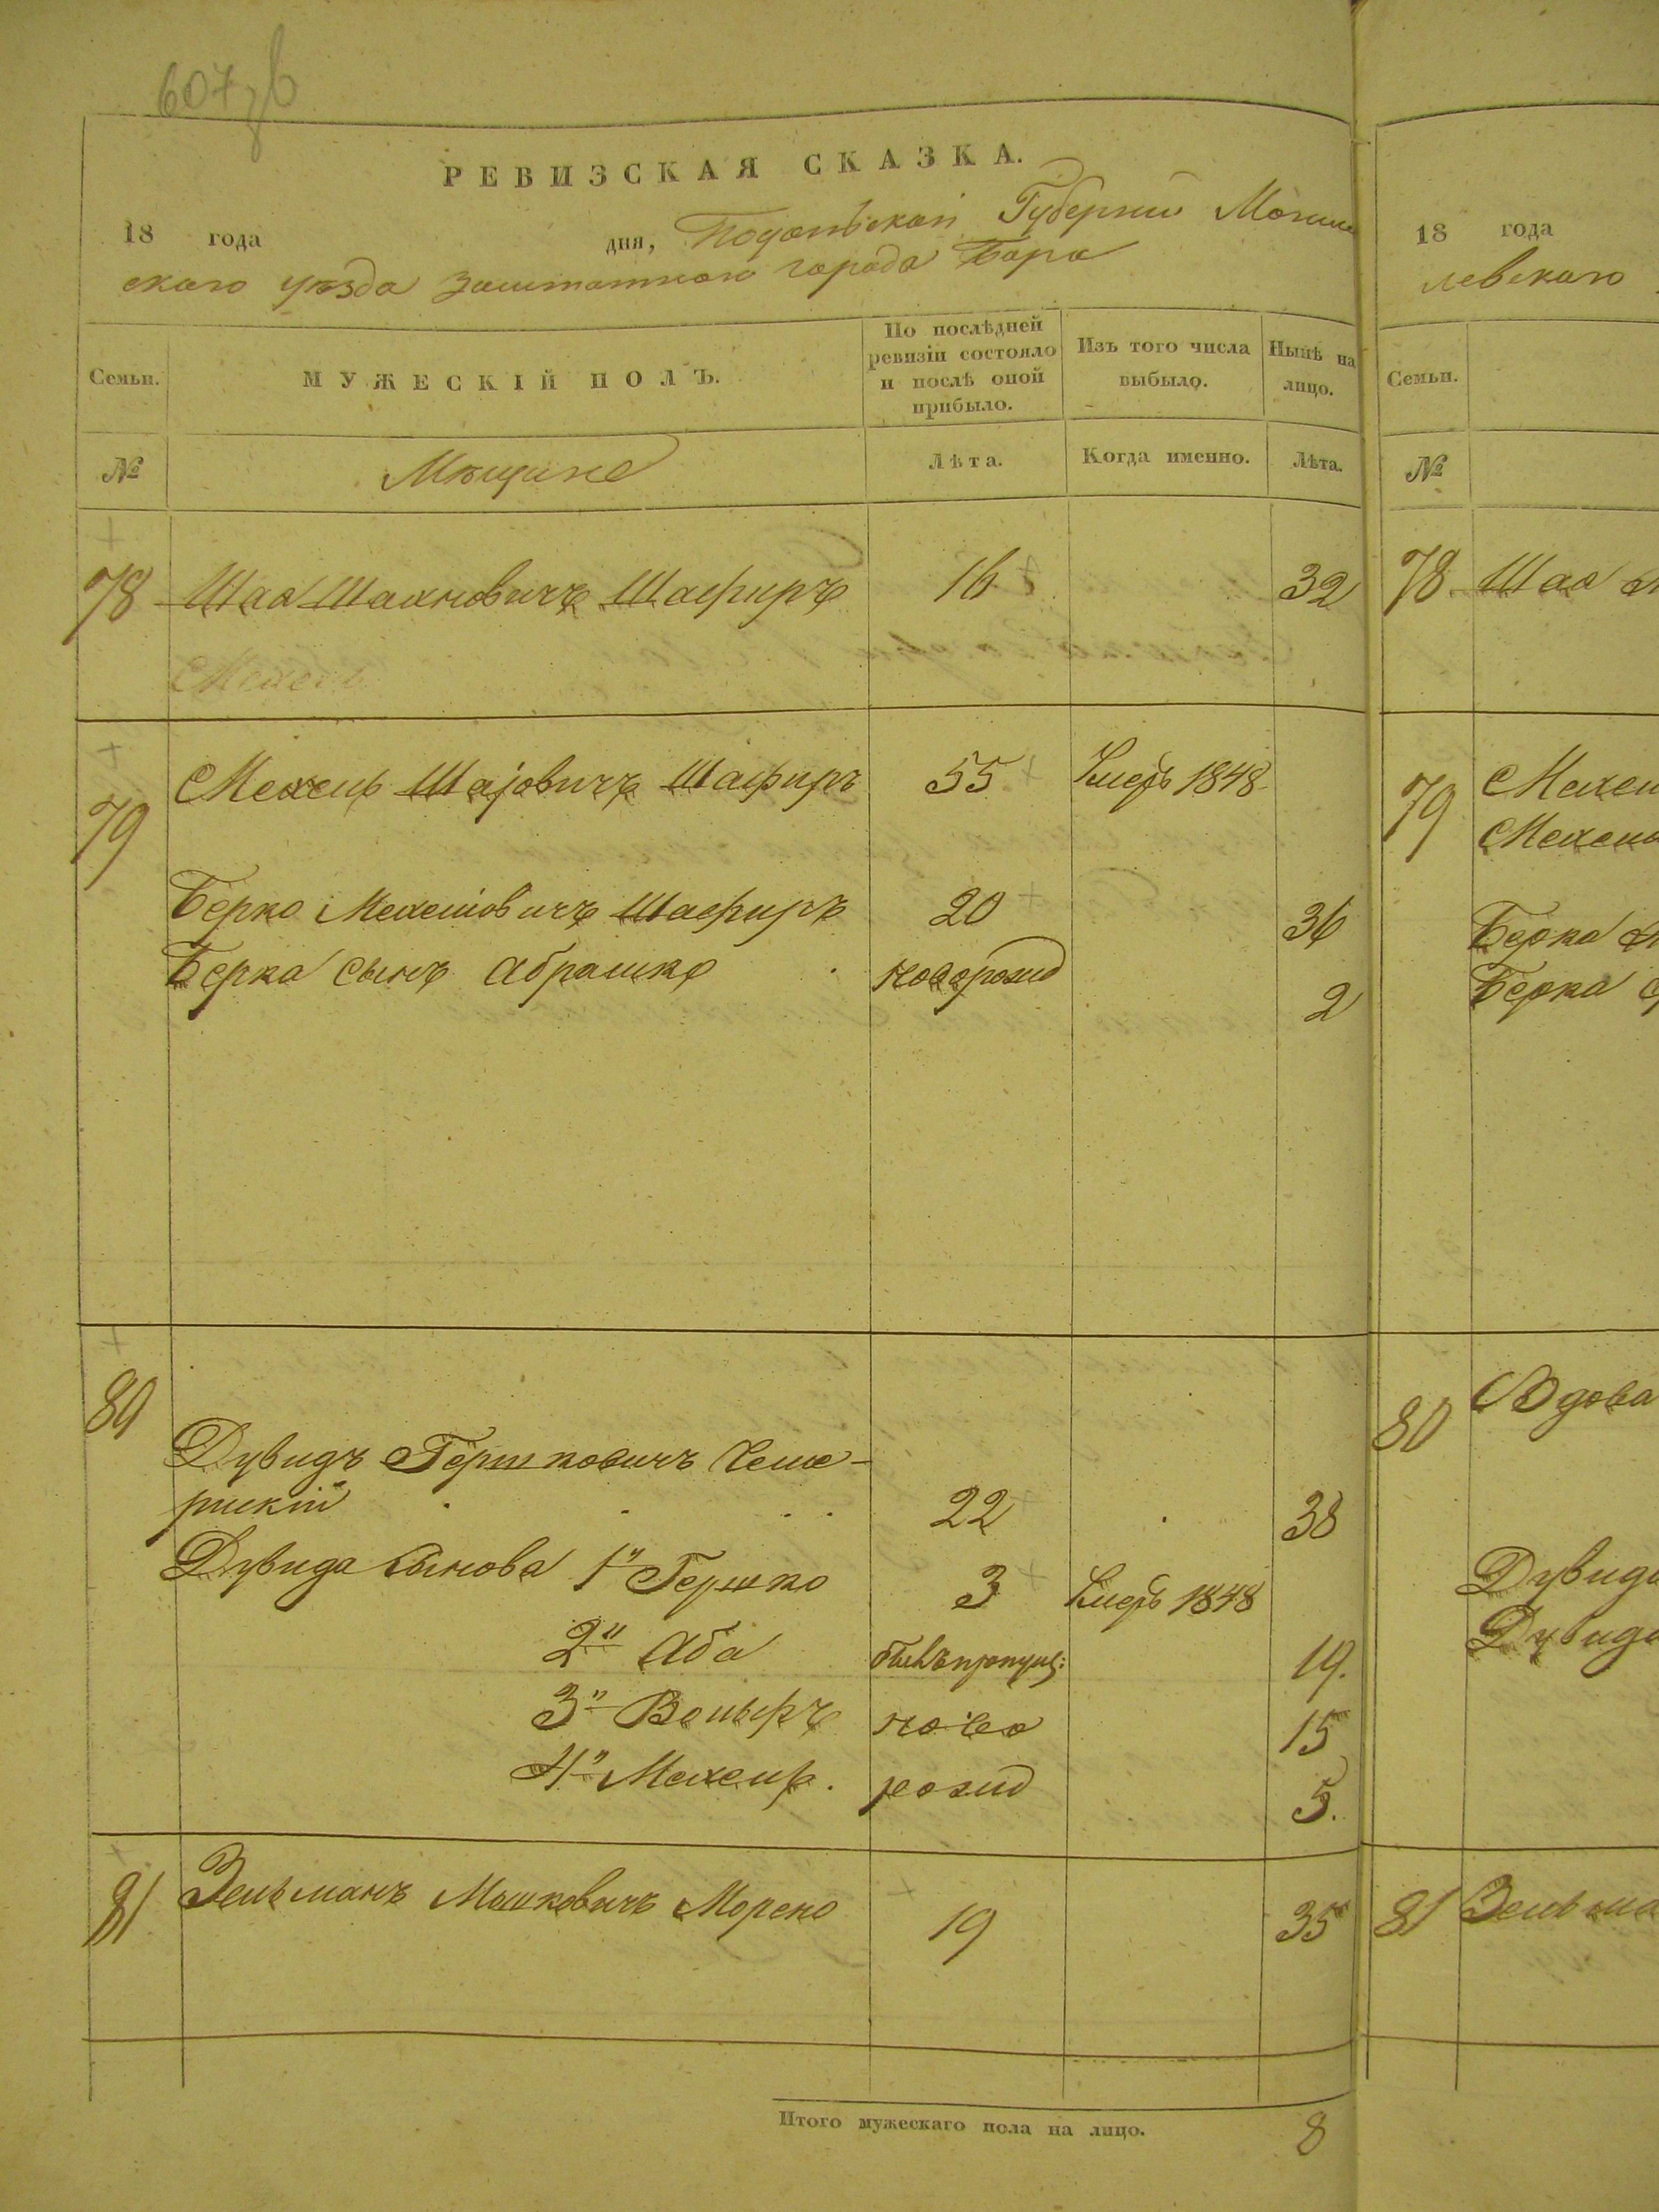 607 об
РЕВИЗСКАЯ СКАЗКА.
18 года дня, Подольской Губернии Могилев
скаго уѣзда заштатного города Бара
Семьи.
МУЖЕСКІЙ ПОЛЪ.
По послѣдней ревизіи состояло и послѣ оной прибыло.
Изъ того числа выбыло.
Нынѣ на лицо.
№
Мѣщане
Лѣта.
Когда именно.
Лѣта.
78 Шая Шахновичъ Шафиръ 16 32
Мехель
79 Мехель Шаjовичъ Шафиръ 55 1848
Берко Мехелiовичъ Шафиръ 20 36
Берка сынъ Абрамко новорожд 2
80
Дувидъ Гершковичъ Чеме-
риский 22 38
Дувида сынова 1й Гершко 3 1848
2й Аба былъ пропущ: 19.
3й Вольфъ ново 15
4й Мехель. рожд 5.
81 Зельманъ Мошковичъ Морено 19 35
Итого мужескаго пола на лицо. 8
18 года
левскаго
Семьи.
№
78 Шая
79
Берка
Берка
80 Вдова
Дувида
Дувида
81